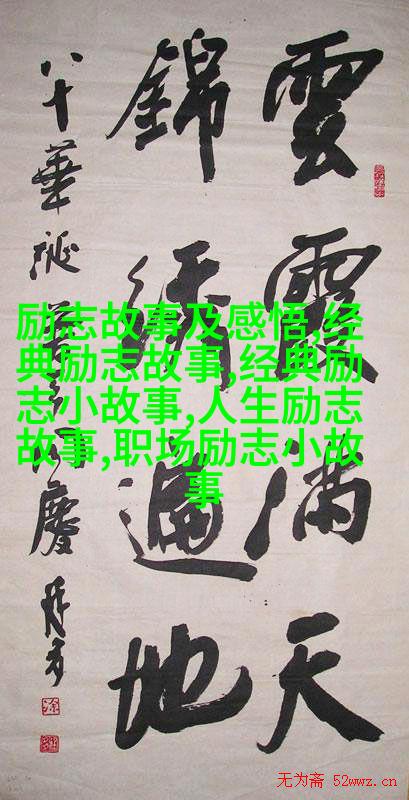 雲霞满天
錦綉遍地
八十華诞
慶
励志故事及感悟,经
典励志故事,经典励
志小故事,人生励志
故事,职场励志小故
事
无为斋 52wwz.cn